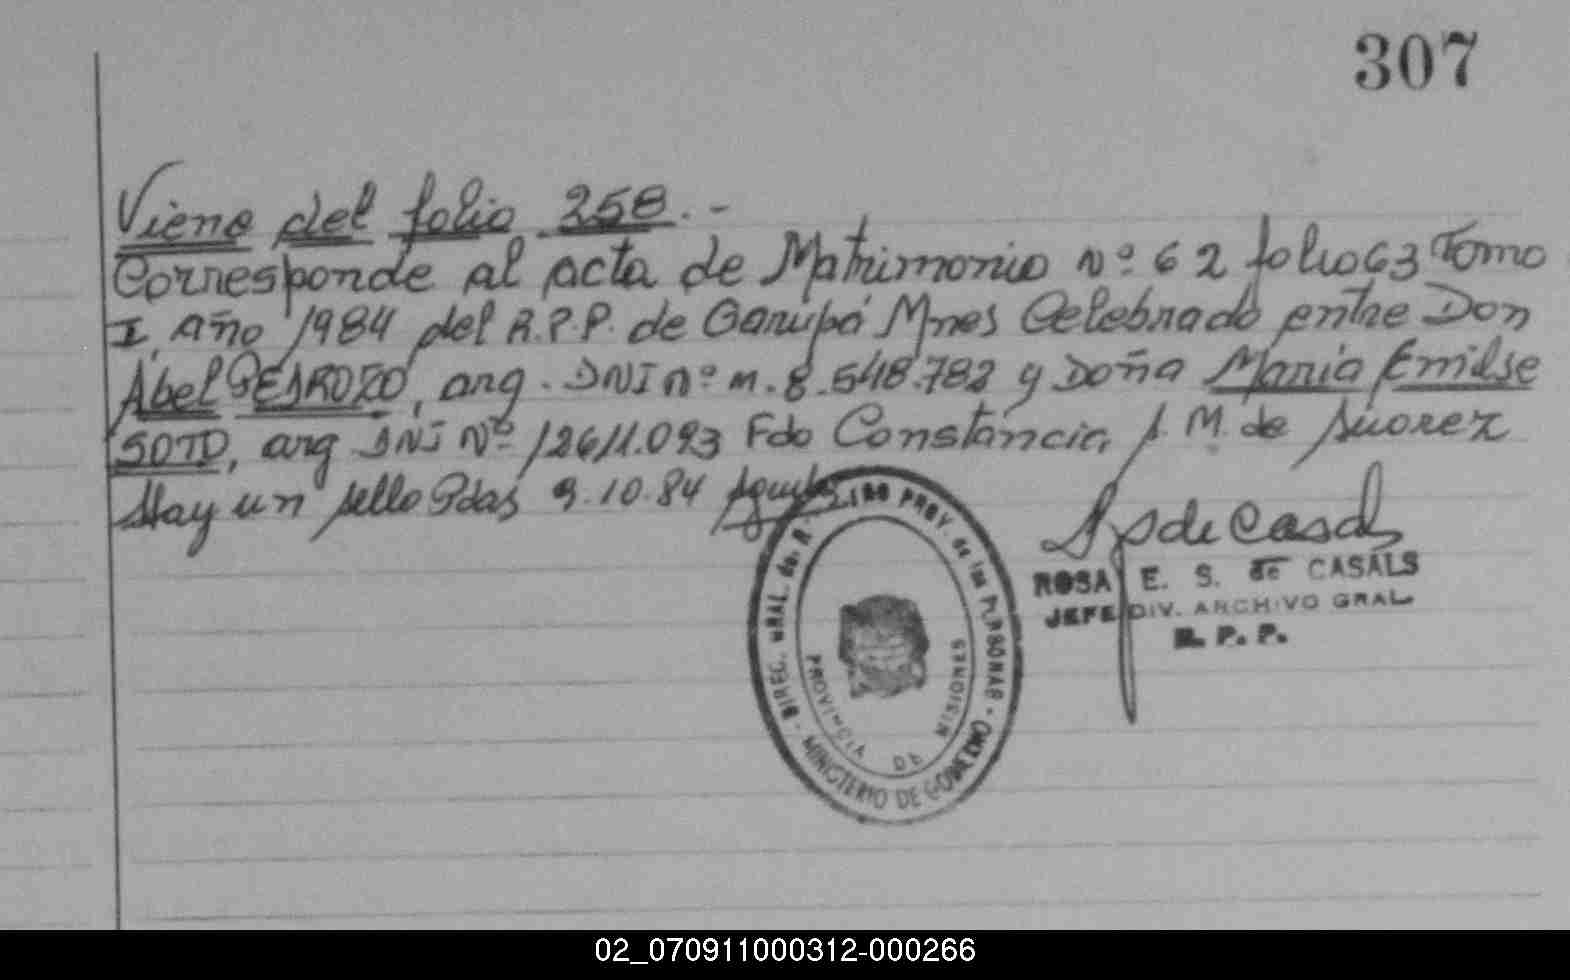 307
Viene del folio 258.-
Corresponde al acta de Matrimonio Nº 62 folio 63 Tomo
I. Año 1984 del R.P.P. de Garupá Mnes Celebrado entre Don
Abel PEDROZO, arg. DNI nº m. 8.548.782 y Doña Maria Emilse
SOTO, arg DNI Nº 12611.093 Fdo Constancia, M. de Suarez
Hay un sello Pdas 9.10.84
ROSA E. S. de CASALS
JEFE DIV. ARCHIVO GRAL.
R. P. P.
DIREC. GRAL. del PROV. de las PERSONAS - MINISTERIO DE GOBIERNO
PROVINCIA DE MISIONES
02_070911000312-000266